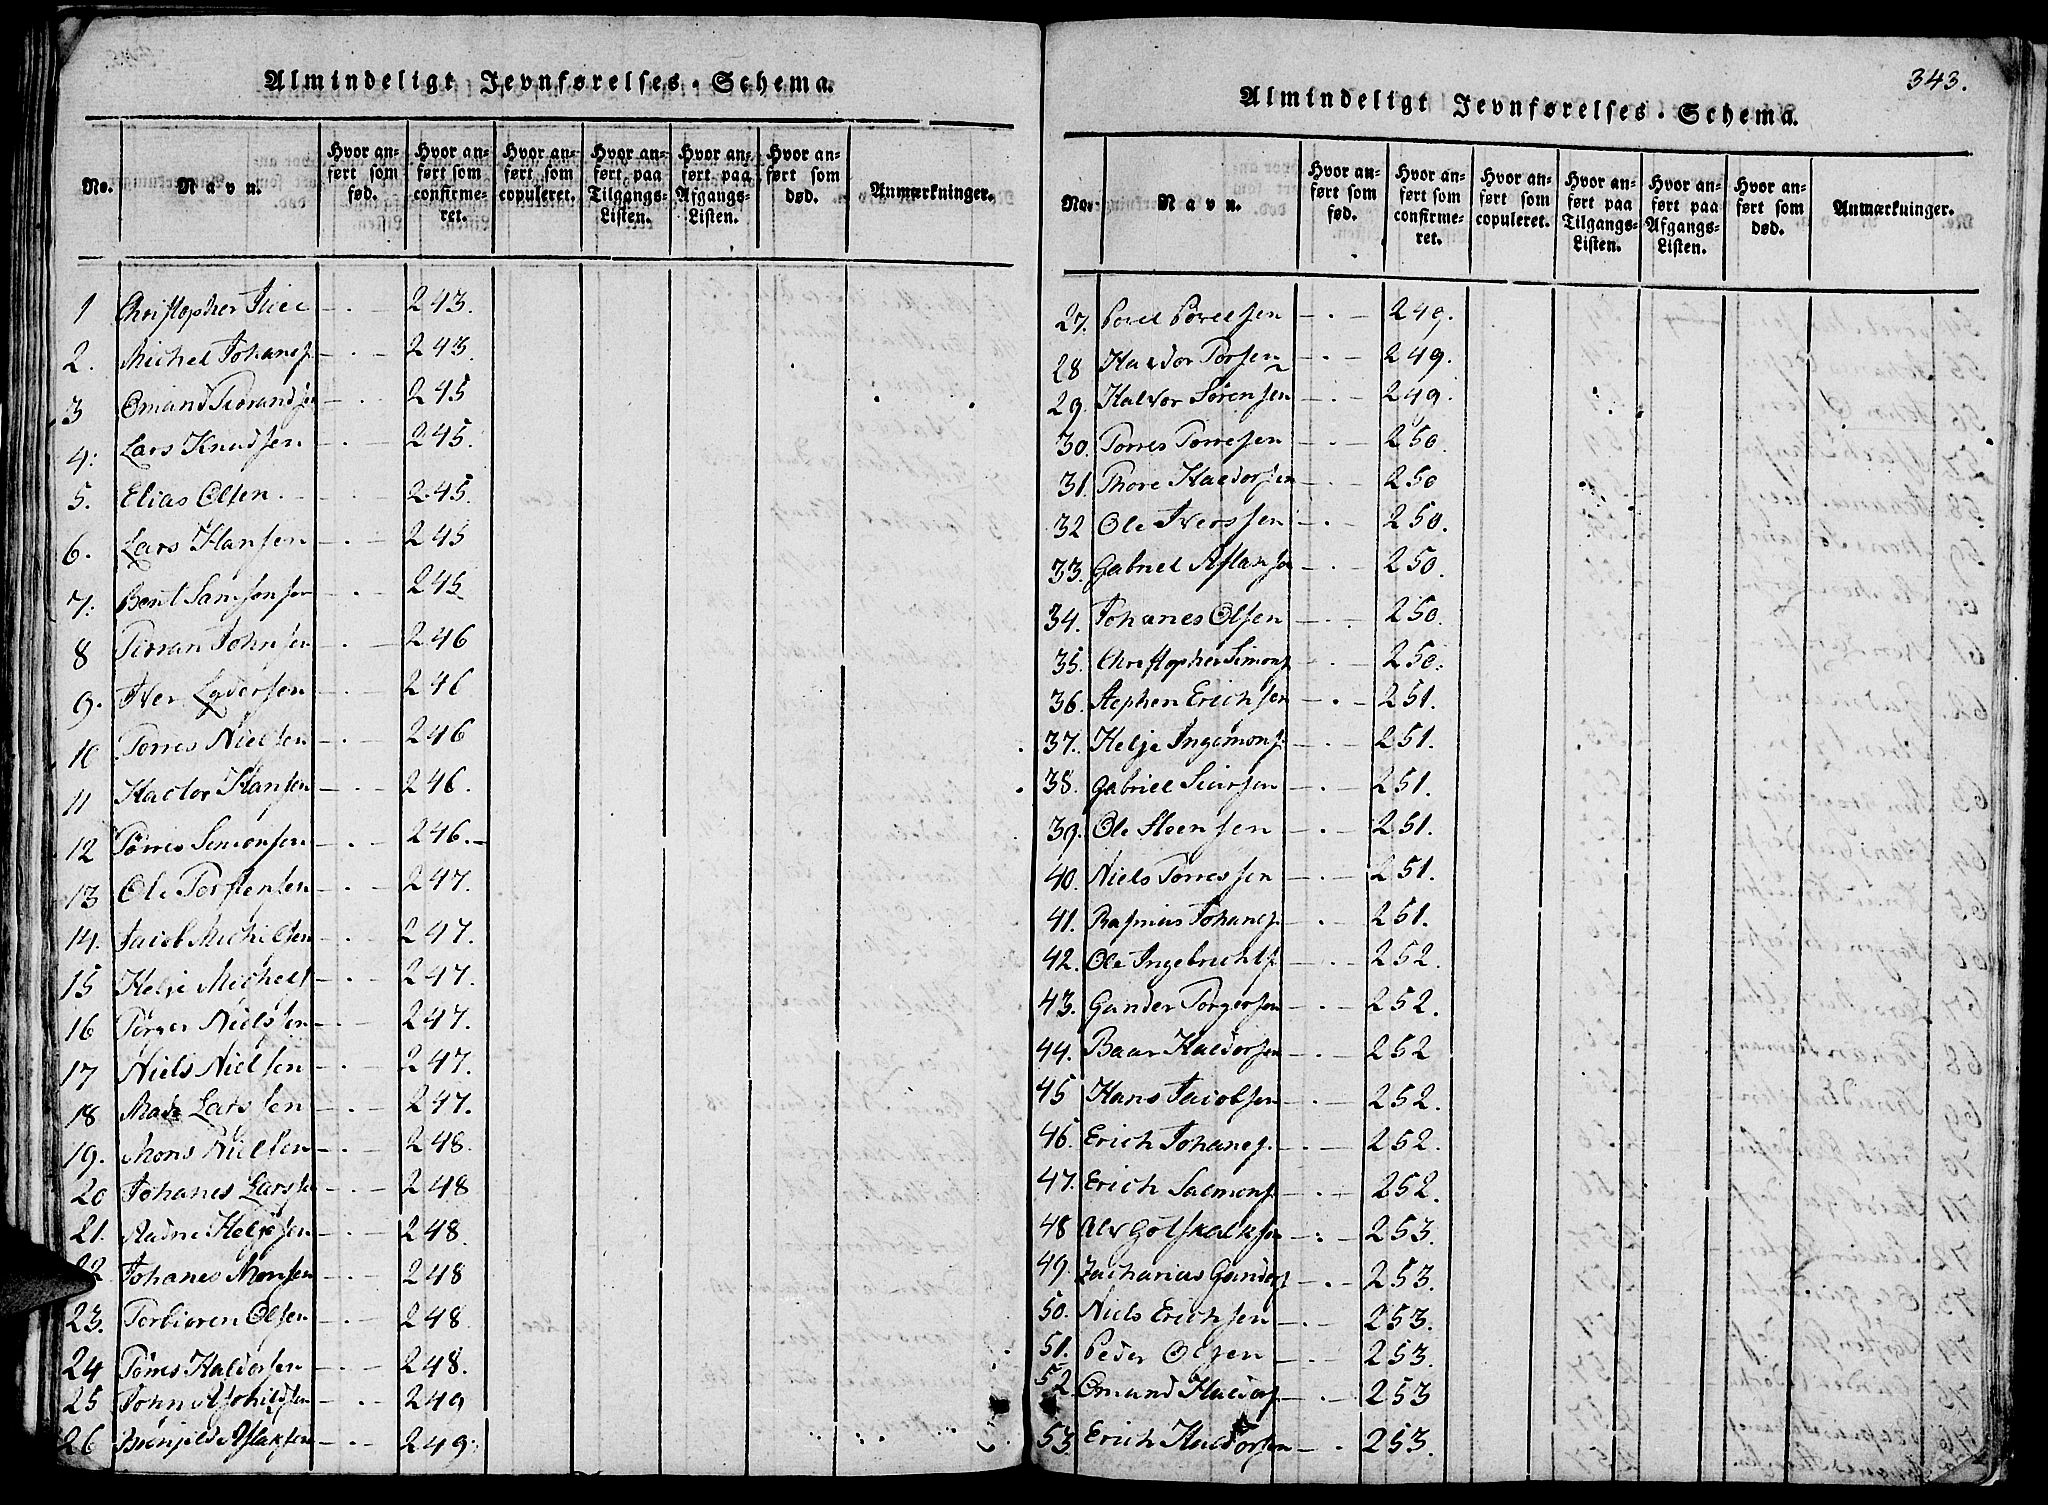 Almindeligt Jevnførelses-Schema.
No. Navn. Hvor anført som fød. Hvor anført som confirmeret. Hvor anført som copuleret. Hvor anført paa Tilgangs-Listen. Hvor anført paa Afgangs-Listen. Hvor anført som død. Anmærkninger.
1 Christopher - . - 243.
2. Michel Johanes - . - 243.
3 Omund - . - 245
4. Lars Knudsen - . - 245.
5. Elias Olsen - . - 245.
6. Lars Hansen - . - 245
7. Bent Samsonsen - . - 245
8 Johnsen - . - 246
9. Iver - . - 246
10 Torres Nielsen - . - 246
11 Hactor Hansen - . - 246.
12 Tørres Simonsen - . - 246.-
13 Ole Torstensen - . - 247.
14. Jacob Michelsen - . - 247.
15 Helje Michels - . - 247.
16 Tørger Nielssen - . - 247.
17 Niels Nielsen - . - 247.
18 Mads Larssen - . - 247.
19. Mons Nielsen - . - 248.
20 Johanes Larsen - . - 248
21. Aadne Heljesen - . - 248.
22 Johanes Monsen - . - 248
23. Torbiøren Olsen - . - 248.
24 Tørres Haldorsen - . - 248.
25 John - . - 249
26 Aslaksen - . - 249.
343.
Almindeligt Jevnførelses-Schema.
No. Navn. Hvor anført som fød. Hvor anført som confirmeret. Hvor anført som copuleret. Hvor anført paa Tilgangs-Listen. Hvor anført paa Afgangs-Listen. Hvor anført som død. Anmærkuinger.
27. Povel Povelsen - . - 249.
28 Haldor Torsen - . - 249.
29. Halvor Sørensen - . - 249.
30. Torres Torresen - . - 250.
31. Thore Haldorsen - . - 250
32 Ole Iverssen - . - 250.
33. Gabriel - . - 250.
34. Johanes Olsen - . - 250.
35. Christopher Simons - . - 250.
36. Stephen Erichsen - . - 251.
37. Helje Ingemons - . - 251.
38. Gabriel Siursen - . - 251.
39. Ole Steensen - . - 251.
40. Niels Torressen - . - 251.
41. Rasmus Johanes - . - 251.
42. Ole Ingebrichts - . - 252.
43. Gunder Torgersen - . - 252.
44. Baar Haldorsen - . - 252
45 Hans Jacobsen - . - 252.
46. Erich Johanes - . - 252.
47. Erich Salmons - . - 252.
48 Alv Gotskalksen - . - 253.
49. Zacharias Gunders - . - 253.
50. Niels Erichsen - . - 253.
51. Peder Olsen - . - 253.
52. Omund Haldors - . - 253
53. Erich Haldorsen - . - 253.